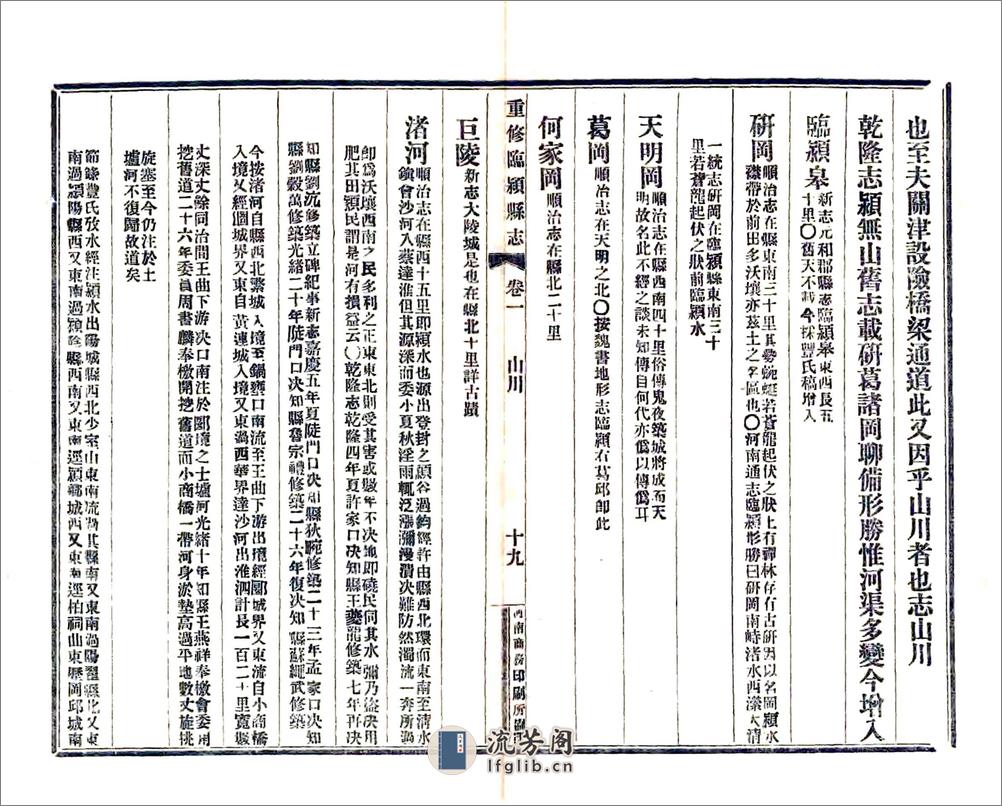 也至夫關津設險橋梁通道此又因乎山川者也志山川
乾隆志潁無山舊志載硏葛諸岡聊備形勝惟河渠多變今增入
臨潁皋新志元和郡縣志臨潁皋東西長五
十里〇舊天不載今採豐氏稿增入
硏岡順治志在縣東南三十里其勢蜿蜒若蒼龍起伏之狀上有禪林仔有古硏因以名岡潁水
襟帶於前田多沃壤亦茲土之名區也〇河南通志臨潁形勝曰硏岡南峙渚水西瀠大清
一統志硏岡在臨潁縣東南三十
里若蒼龍起伏之狀前臨潁水
天明岡順治志在縣西南四十里俗傳鬼夜築城將成而天
明故名此不經之談未知自何代亦僞以傳僞耳
葛岡順治志在天明之北〇按魏書地形志臨潁有葛邱即此
何家岡順治志在縣北二十里
重修臨潁縣志
卷一
山川
十九
西南商務印刷所
巨陵新志大陵城是也在縣北十里詳古蹟
渚河順治志在縣西十五里即潁水也源出登封之潁谷過鈞經許由縣西北環而東南至清水
鎮會沙河入蔡達淮但其源深而委小夏秋淫雨輒泛漲瀰漫潰決難防然濁流一奔所過
即爲沃壤西南之民多利之正東東北則受其害或駿年不決地即磽民同其水瀰乃盜決用
肥其田潁民謂是河有損益云〇乾隆志乾隆四年夏許家口決知縣王夔龍修築七年再決
知縣劉沅修築立碑紀事新志嘉慶五年夏陡門口決知縣狄畹修築二十三年孟家口決知
縣劉毅萬修築光緒二十年陡門口決知縣魯宗禮修築二十六年復決知縣蘇繩武修築
今按渚河自縣西北繁城入境至鍋甕口南流至王曲下游出境經郾城界又東流自小商橋
入境又經郾城界又東自黃連城入境又東過西華界達沙河出淮泗計長一百二十里寬縣
丈深丈餘同治間王曲下游決口南注於郾境之士壚河光緒十年知縣王燕祥奉檄會委用
挖舊道二十六年委員周書麟奉檄開挖舊道而小商橋一帶河身淤墊高過平地數丈旋挑
旋塞至今仍注於土
壚河不復歸故道矣
箭錄豐氏攷水經注潁水出陽城縣西北少室山東南流過其縣南又東南過陽翟縣北又東
南過潁陽縣西又東南過潁陰縣西南又東南逕潁鄉城西又東南逕柏祠曲東歷岡邱城南
流芳阁
lfglib.cn